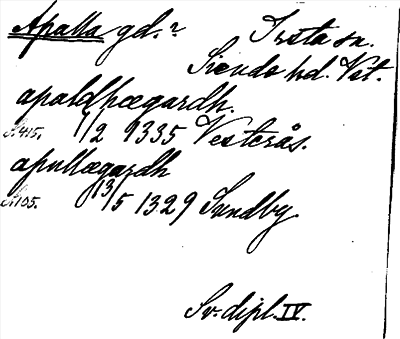 Apalla gd.? Irsta sn.
Siende hd. Vst.
apaldhægardh.
S. 415. 1/2 9335 Vesterås.
apullægardh
S. 105. 13/5 1329 Sundby
Sv. dipl. IV.